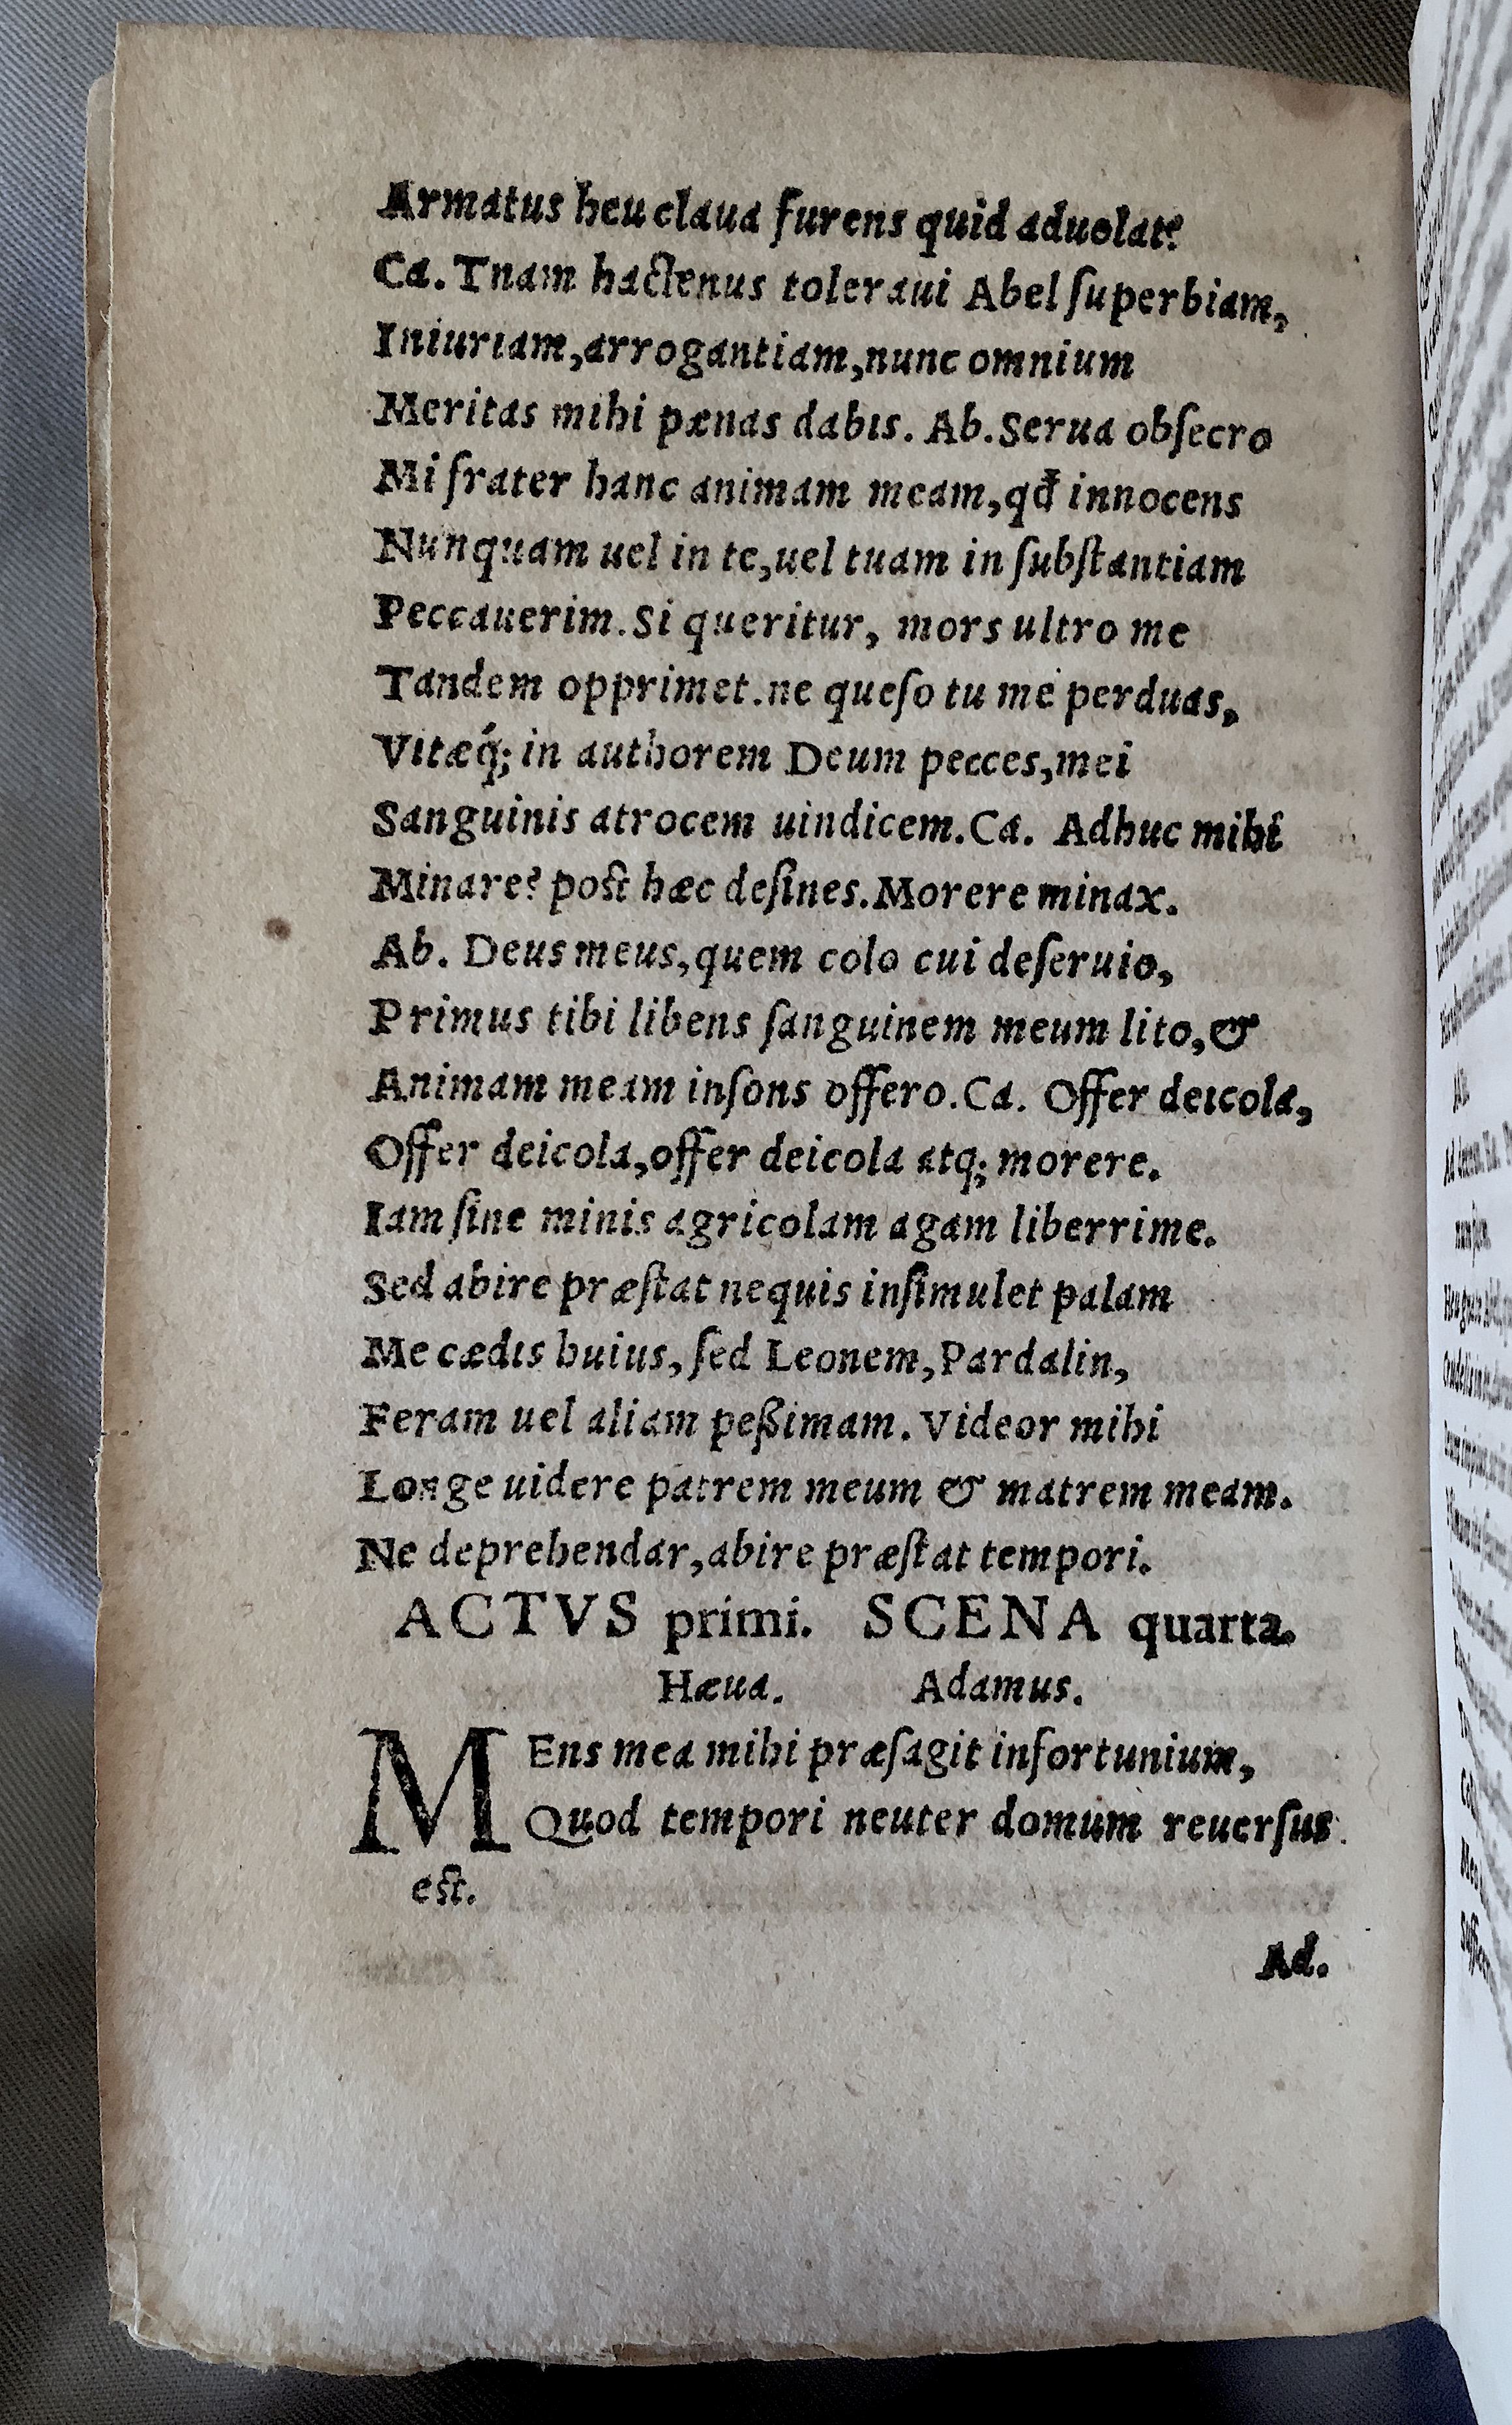 Armatus heu claua furens quid aduolat?
Ca. Tnam hactenus toleraui Abel ſuperbiam,
Iniuriam,arrogantiam,nunc omnium
Meritas mihi pænas dabis. Ab.Serua obſecro
Mi frater hanc animam meam,qđ innocens
Nunquam uel in te,uel tuam in ſubſtantiam
Peccauerim.Si queritur, mors ultro me
Tandem opprimet.ne queſo tu me perduas,
Vitæq́; in authorem Deum pecces,mei
Sanguinis atrocem uindicem.Ca. Adhuc mihi
Minare? poſt hæc deſines.Morere minax.
Ab. Deus meus,quem colo cui deſeruio,
Primus tibi libens ſanguinem meum lito,&
Animam meam inſons offero.Ca. Offer deicola,
Offer deicola,offer deicola atq; morere.
Iam ſine minis agricolam agam liberrime.
Sed abire præſtat nequis inſimulet palam
Me cædis huius, ſed Leonem,Pardalin,
Feram uel aliam peßimam. Videor mihi
Longe uidere patrem meum & matrem meam.
Ne deprehendar,abire præſtat tempori.
ACTVS primi. SCENA quarta.
Hæua. Adamus.
MEns mea mihi præſagit infortunium,
Quod tempori neuter domum reuerſus
eſt.
Ad.